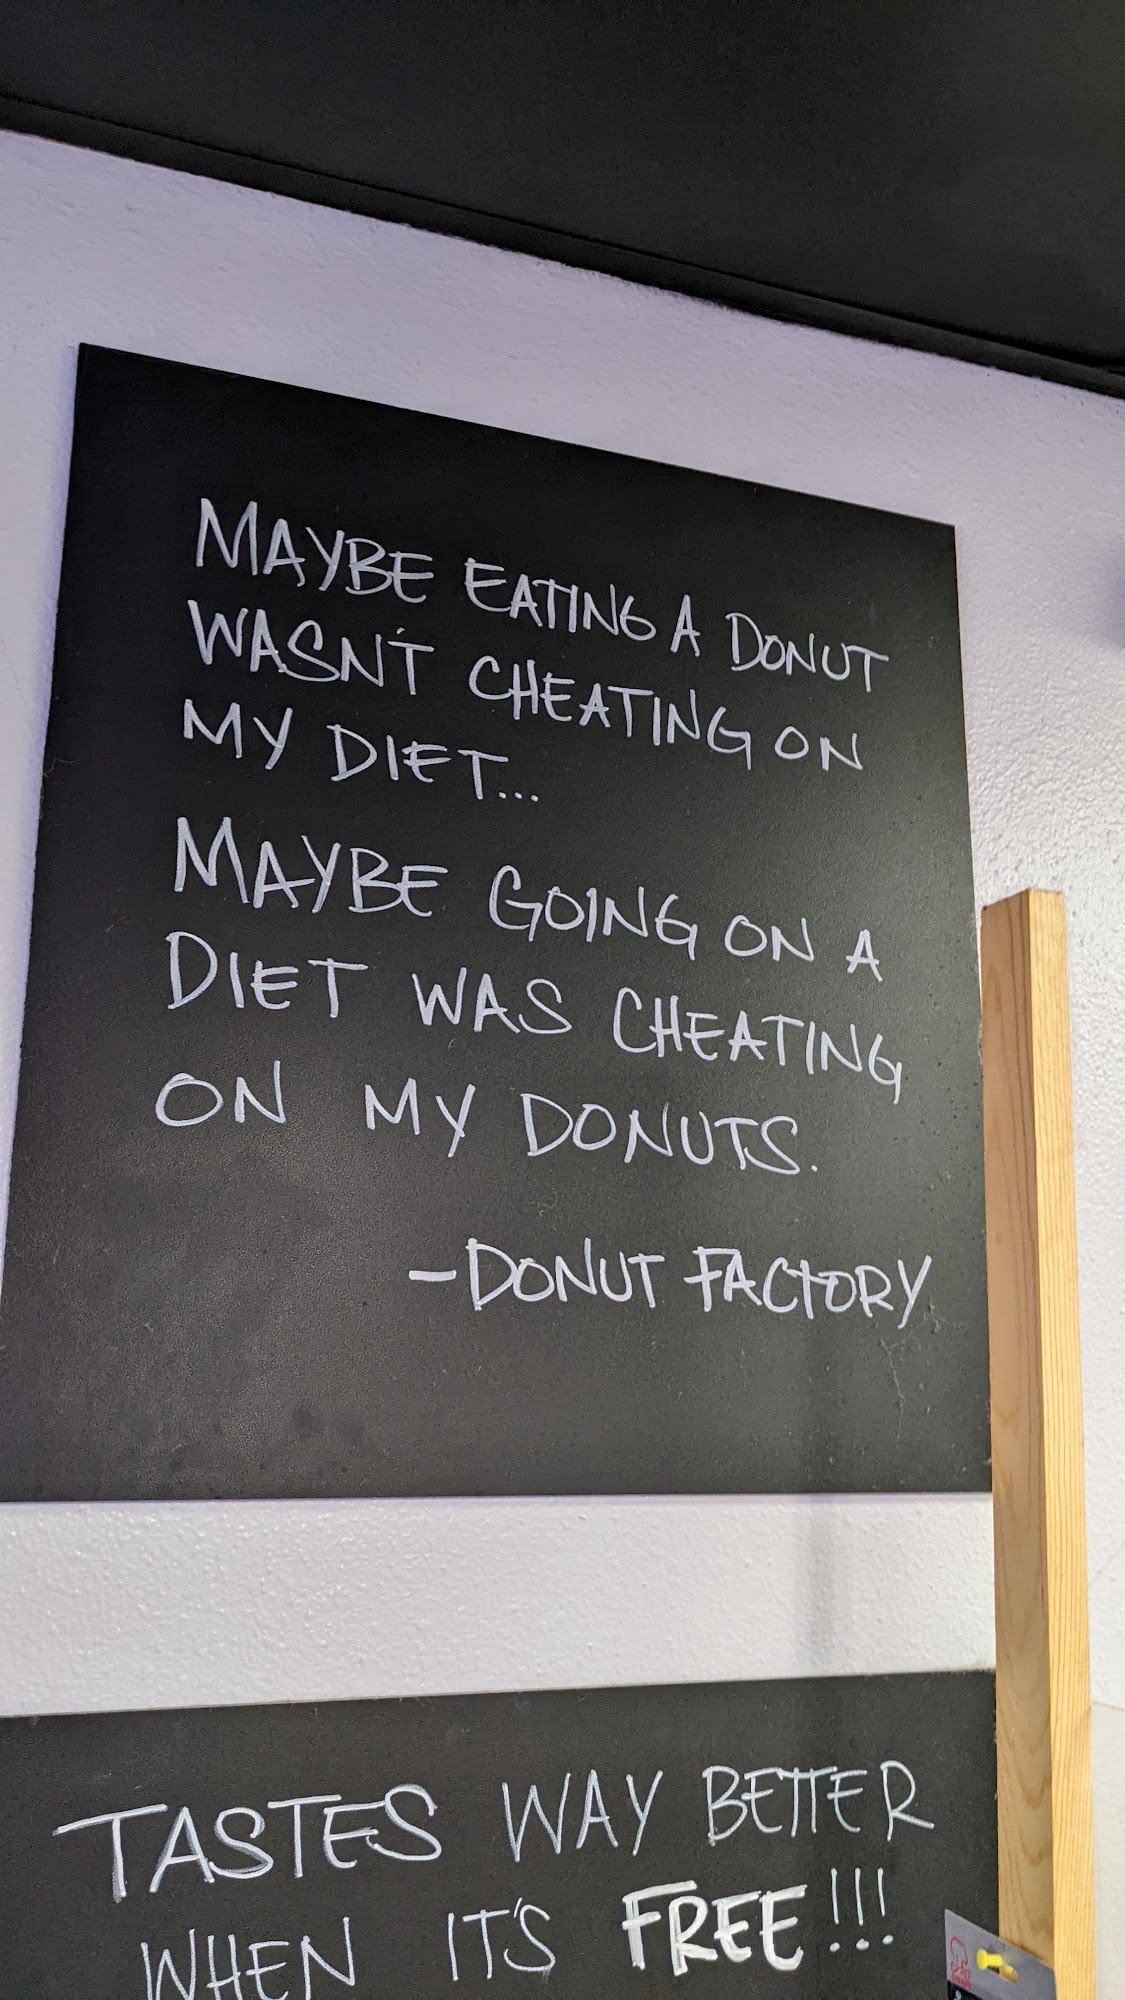 MAYBE EATING A DONUT
WASN'T CHEATING ON
MY DIET...
MAYBE GOING ON A
DIET WAS CHEATING
ON MY DONUTS.
-DONUT FACTORY
TASTES WAY BETTER
WHEN IT'S FREE!!!